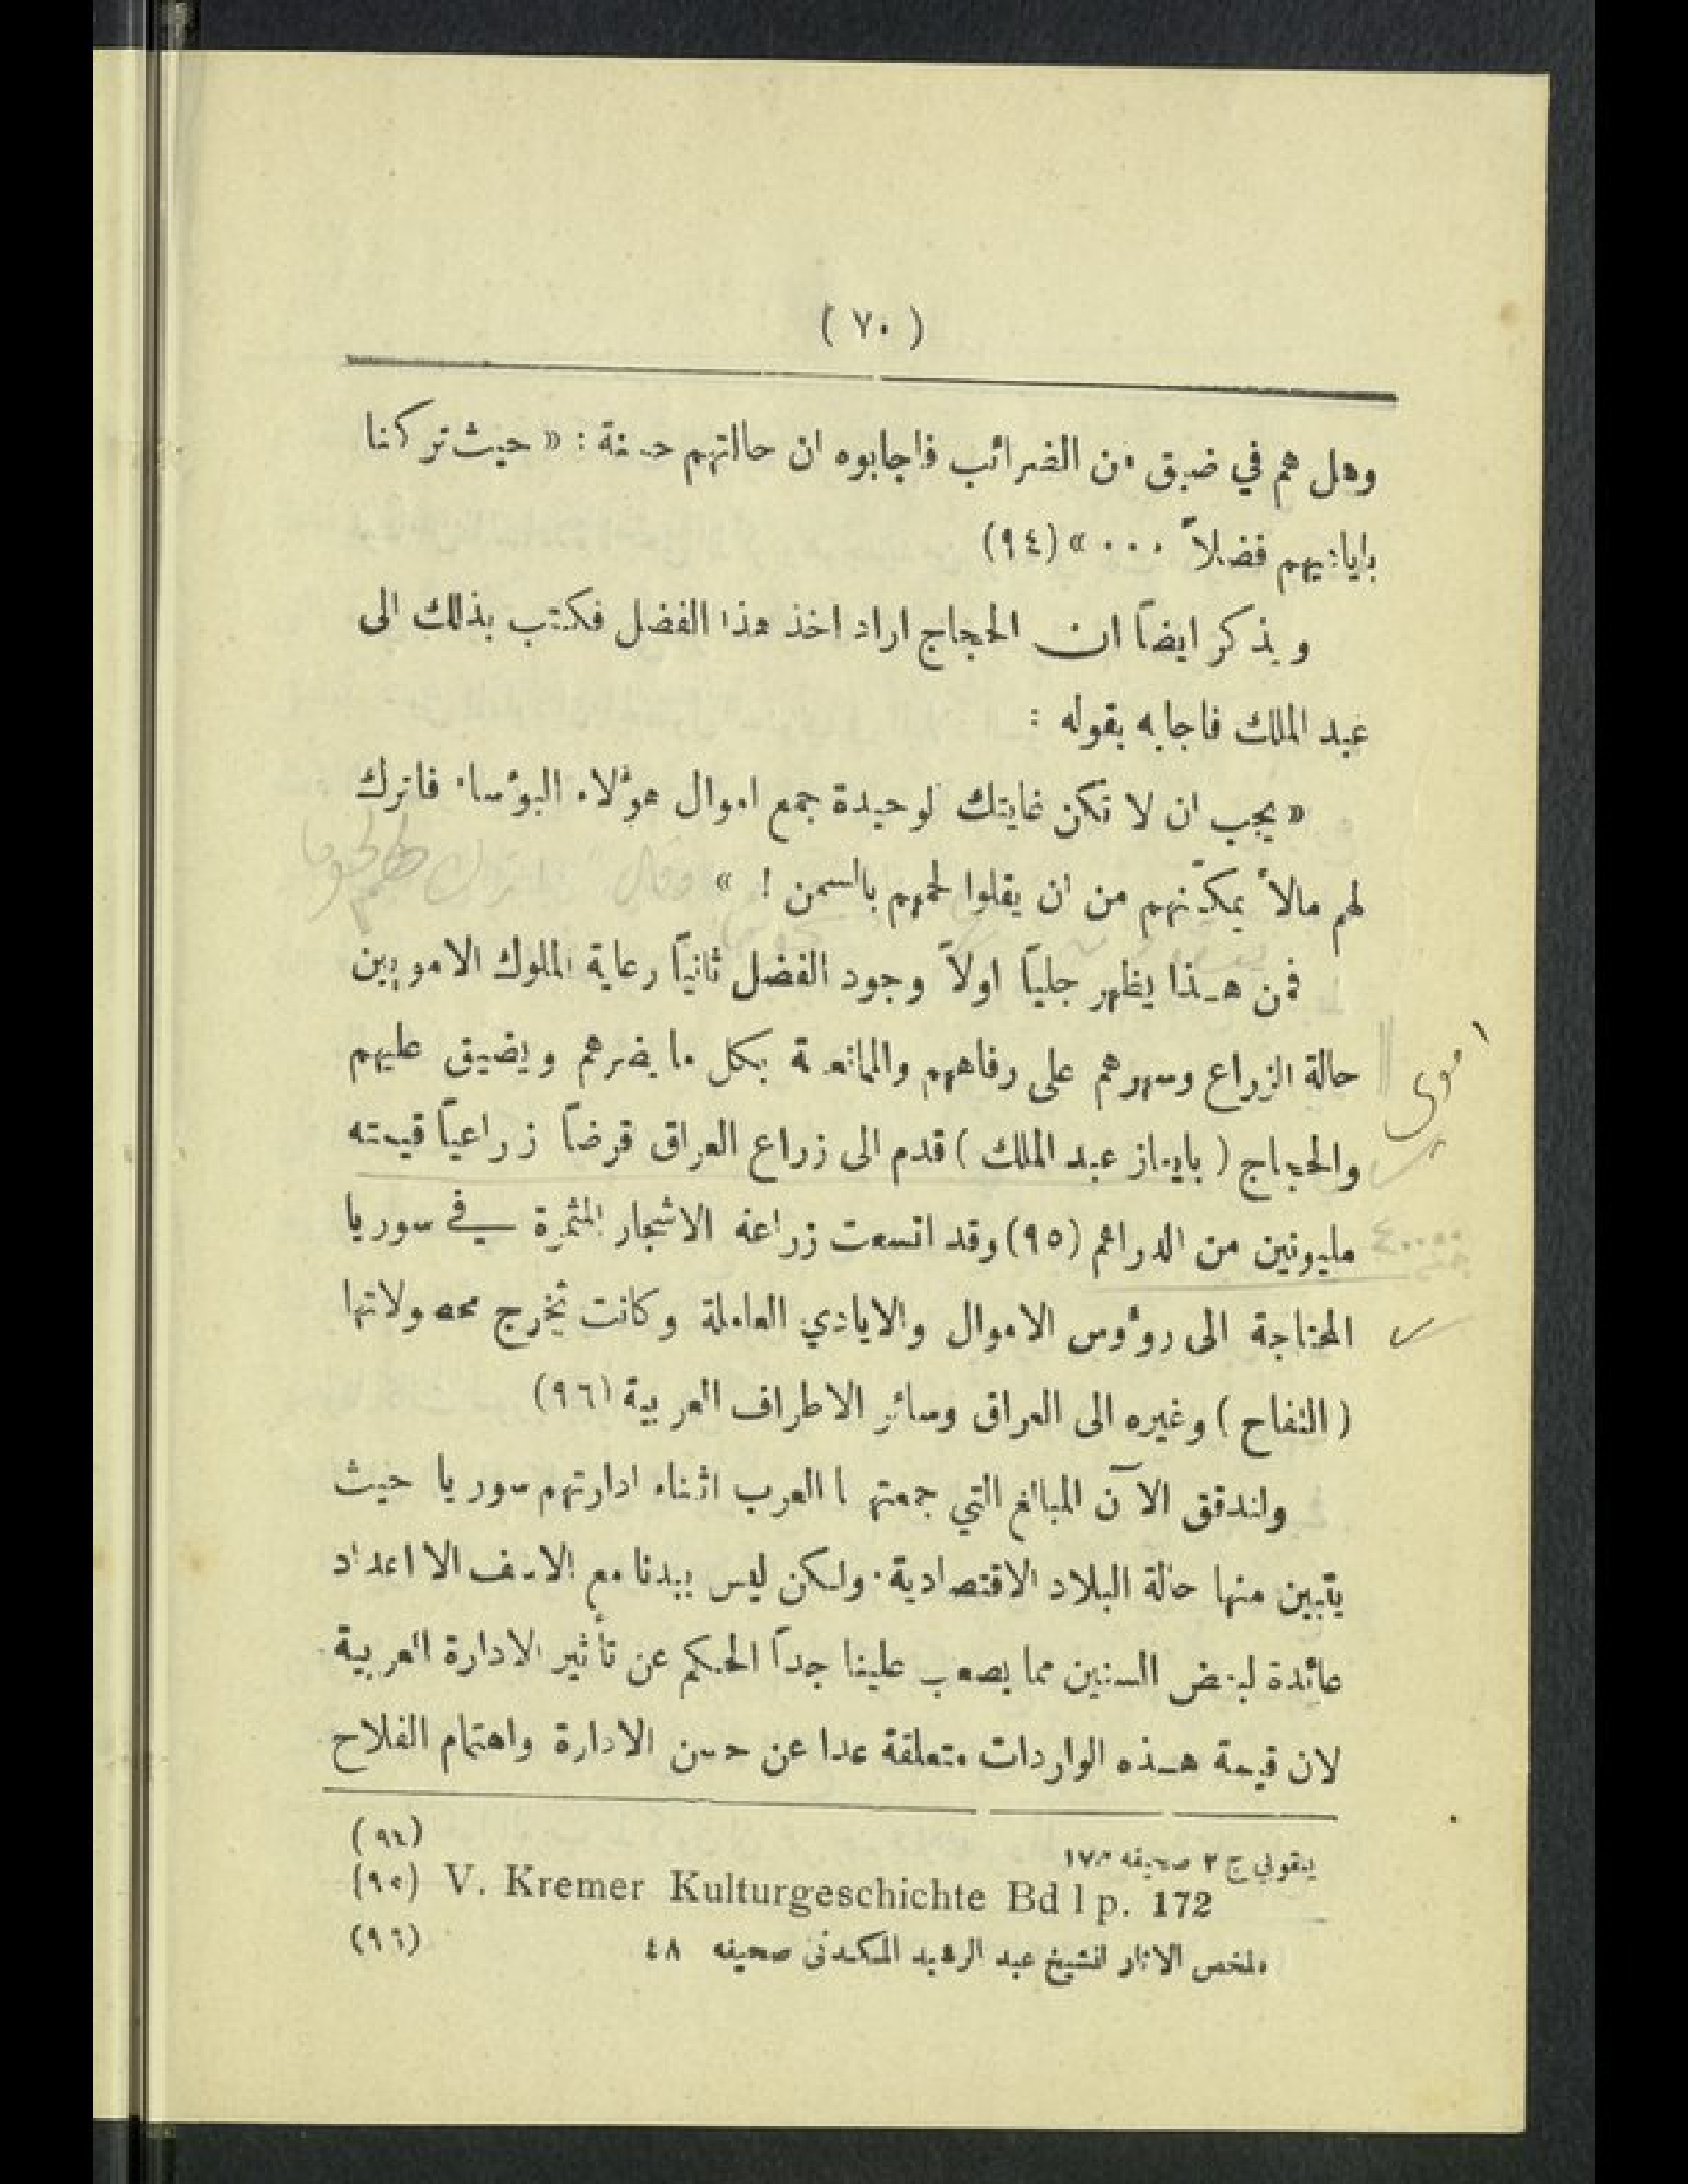 ( ٧٠ )
وهل هم في ضيق من الضرائب فاجابوه ان حالتهم حسنة : « حيث تركنا
باياديهم فضلاً ٠٠٠ » (٩٤)
ويذكر ايضاً ان الحجاج اراد اخذ هذا الفضل فكتب بذلك الى
عبد الملك فاجابه بقوله :
« يجب ان لا تكن غايتك لوحيدة جمع اموال هؤلاء البؤساء فاترك
لهم مالاً يمكّنهم من ان يقلوا لحمهم بالسمن ! »
فمن هذا يظهر جلياً اولاً وجود الفضل ثانياً رعاية الملوك الامويين
حالة الزراع وسهرهم على رفاههم والممانعة بكل ما يضرهم ويضيق عليهم
والحجاج ( بايعاز عبد الملك ) قدم الى زراع العراق قرضاً زراعياً قيمته
مليونين من الدراهم (٩٥) وقد اتسعت زراعة الاشجار المثمرة في سوريا
المحتاجة الى رؤوس الاموال والايادي العاملة وكانت تخرج محصولاتها
( التفاح ) وغيره الى العراق وسائر الاطراف العربية (٩٦)
ولندقق الآن المبالغ التي جمعتها العرب اثناء ادارتهم سوريا حيث
يتبين منها حالة البلاد الاقتصادية ٠ ولكن ليس بيدنا مع الاسف الا اعداد
عائدة لبعض السنين مما يصعب علينا جداً الحكم عن تأثير الادارة العربية
لان قيمة هذه الواردات متعلقة عدا عن حسن الادارة واهتمام الفلاح
(٩٤) يعقوبي ج ٢ صحيفه
(٩٥) V. Kremer Kulturgeschichte Bd 1 p. 172
(٩٦) ملخص الاثار للشيخ عبد الرشيد صحيفه ٤٨
اموي